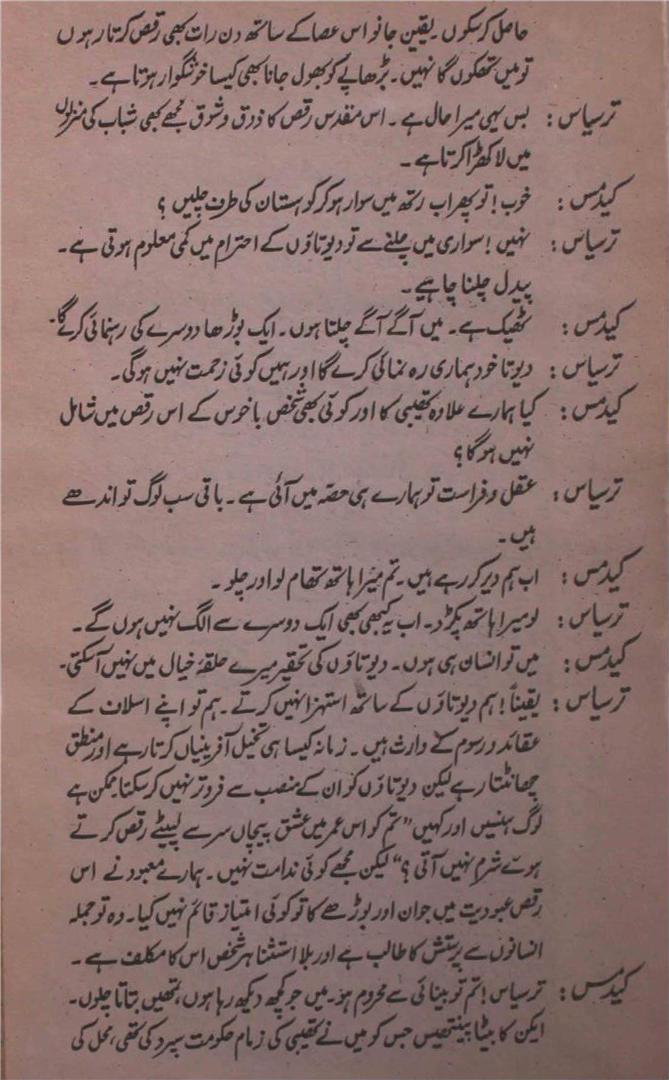 حاصل کرسکوں۔ یقین جانو اس عصا کے ساتھ دن رات بھی رقص کرتا رہوں
تو میں تھکوں گا نہیں۔ بڑھاپے کو بھول جانا بھی کیسا خوشگوار ہوتا ہے۔
ترسیاس: بس یہی میرا حال ہے۔ اس مقدس رقص کا ذوق و شوق مجھے بھی شباب کی منزلوں
میں لا کھڑا کرتا ہے۔
کیڈمس: خوب! تو پھر اب رتھ میں سوار ہوکر کوہستان کی طرف چلیں؟
ترسیاس: نہیں! سواری میں چلنے سے تو دیوتاؤں کے احترام میں کمی معلوم ہوتی ہے۔
پیدل چلنا چاہیے۔
کیڈمس: ٹھیک ہے۔ میں آگے آگے چلتا ہوں۔ ایک بوڑھا دوسرے کی رہنمائی کرے گا۔
ترسیاس: دیوتا خود ہماری رہ نمائی کرے گا اور ہمیں کوئی زحمت نہیں ہوگی۔
کیڈمس: کیا ہمارے علاوہ تھیبی کا اور کوئی بھی شخص باخوس کے اس رقص میں شامل
نہیں ہوگا؟
ترسیاس: عقل و فراست تو ہمارے ہی حصّہ میں آئی ہے۔ باقی سب لوگ تو اندھے
ہیں۔
کیڈمس: اب ہم دیر کر رہے ہیں۔ تم میرا ہاتھ تھام لو اور چلو۔
ترسیاس: لو میرا ہاتھ پکڑو۔ اب یہ کبھی بھی ایک دوسرے سے الگ نہیں ہوں گے۔
کیڈمس: میں تو انسان ہی ہوں۔ دیوتاؤں کی تحقیر میرے حلقۂ خیال میں نہیں آسکتی۔
ترسیاس: یقیناً! ہم دیوتاؤں کے ساتھ استہزا نہیں کرتے۔ ہم تو اپنے اسلاف کے
عقائد و رسوم کے وارث ہیں۔ زمانہ کیسا ہی تخیل آفرینیاں کرتا رہے اور منطق
چھانٹتا رہے لیکن دیوتاؤں کو ان کے منصب سے فروتر نہیں کرسکتا۔ ممکن ہے
لوگ ہنسیں اور کہیں "تم کو اس عمر میں عشق پیچاں سر سے لپیٹے رقص کرتے
ہوئے شرم نہیں آتی؟" لیکن مجھے کوئی ندامت نہیں۔ ہمارے معبود نے اس
رقص عبودیت میں جوان اور بوڑھے کا تو کوئی امتیاز قائم نہیں کیا۔ وہ تو جملہ
انسانوں سے پرستش کا طالب ہے اور بلا استثنا ہر شخص اس کا مکلف ہے۔
کیڈمس: ترسیاس! تم تو بینائی سے محروم ہو۔ میں جو کچھ دیکھ رہا ہوں، تمھیں بتاتا چلوں۔
ایکن کا بیٹا پینتھیس جس کو میں نے تھیبی کی زمام حکومت سپرد کی تھی، محل کی